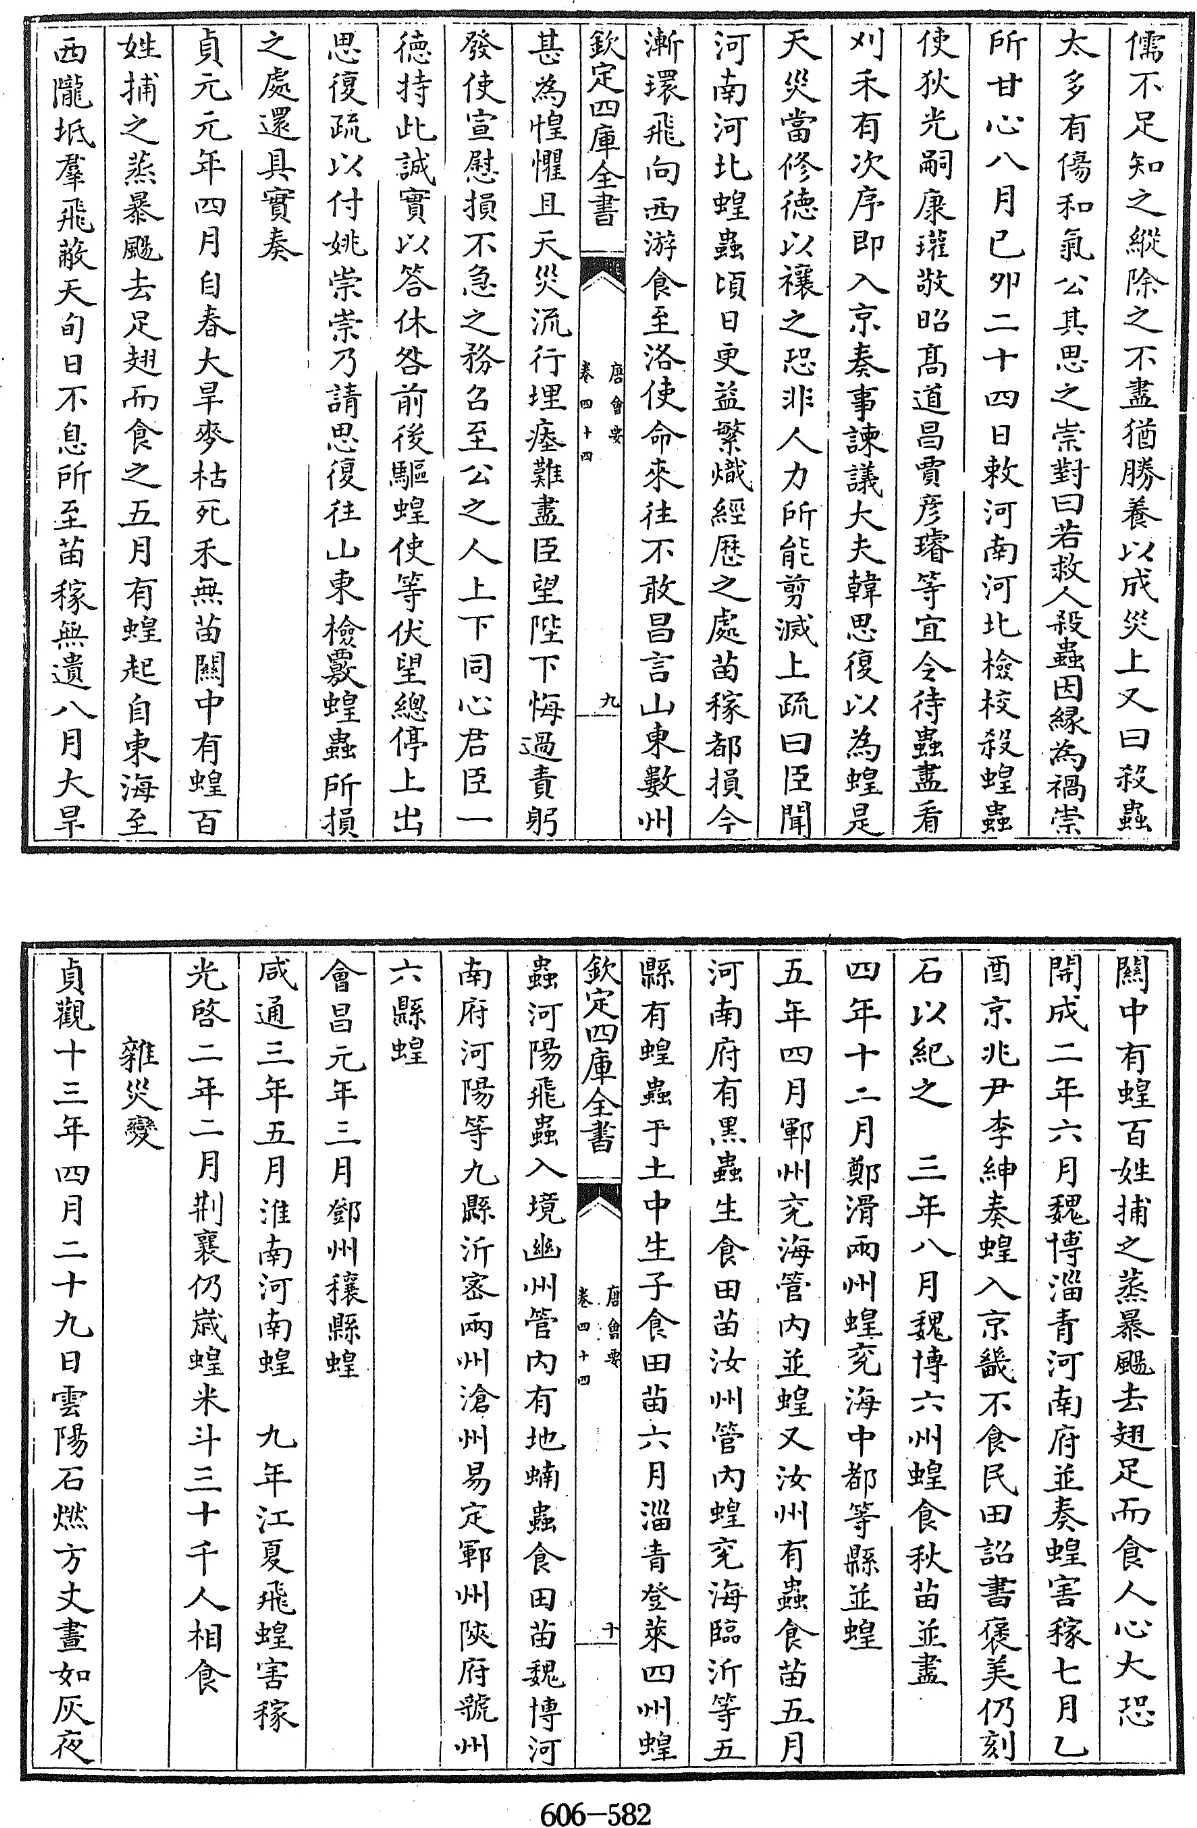 儒不足知之縱除之不盡猶勝養以成災上又曰殺蟲
太多有傷和氣公其思之崇對曰若救人殺蟲因緣為禍崇
所甘心八月己卯二十四日敕河南河北檢校殺蝗蟲
使狄光嗣康瓘敬昭髙道昌賈彦璿等宜令待蟲盡看
刈禾有次序即入京奏事諫議大夫韓思復以為蝗是
天災當修徳以禳之恐非人力所能剪滅上疏曰臣聞
河南河北蝗蟲頃日更益繁熾經歴之處苗稼都損今
漸環飛向西游食至洛使命來往不敢昌言山東數州
欽定四庫全書
唐會要
卷四十四
九
甚為惶懼且天災流行埋瘞難盡臣望陛下悔過責躬
發使宣慰損不急之務召至公之人上下同心君臣一
徳持此誠實以答休咎前後驅蝗使等伏望總停上出
思復疏以付姚崇崇乃請思復往山東檢覈蝗蟲所損
之處還具實奏
貞元元年四月自春大旱麥枯死禾無苗關中有蝗百
姓捕之蒸暴颺去足翅而食之五月有蝗起自東海至
西隴坻羣飛蔽天旬日不息所至苗稼無遺八月大旱
關中有蝗百姓捕之蒸暴颺去翅足而食人心大恐
開成二年六月魏博淄青河南府並奏蝗害稼七月乙
酉京兆尹李紳奏蝗入京畿不食民田詔書褒美仍刻
石以紀之　三年八月魏博六州蝗食秋苗並盡
四年十二月鄭滑兩州蝗兖海中都等縣並蝗
五年四月鄆州兖海管内並蝗又汝州有蟲食苗五月
河南府有黑蟲生食田苗汝州管内蝗兖海臨沂等五
縣有蝗蟲于土中生子食田苗六月淄青登萊四州蝗
欽定四庫全書
唐會要
卷四十四
十
蟲河陽飛蟲入境幽州管内有地蝻蟲食田苗魏博河
南府河陽等九縣沂密兩州滄州易定鄆州陜府虢州
六縣蝗
會昌元年三月鄧州穰縣蝗
咸通三年五月淮南河南蝗　九年江夏飛蝗害稼
光啓二年二月荆襄仍嵗蝗米斗三十千人相食
雜災變
貞觀十三年四月二十九日雲陽石燃方丈晝如灰夜
606—582